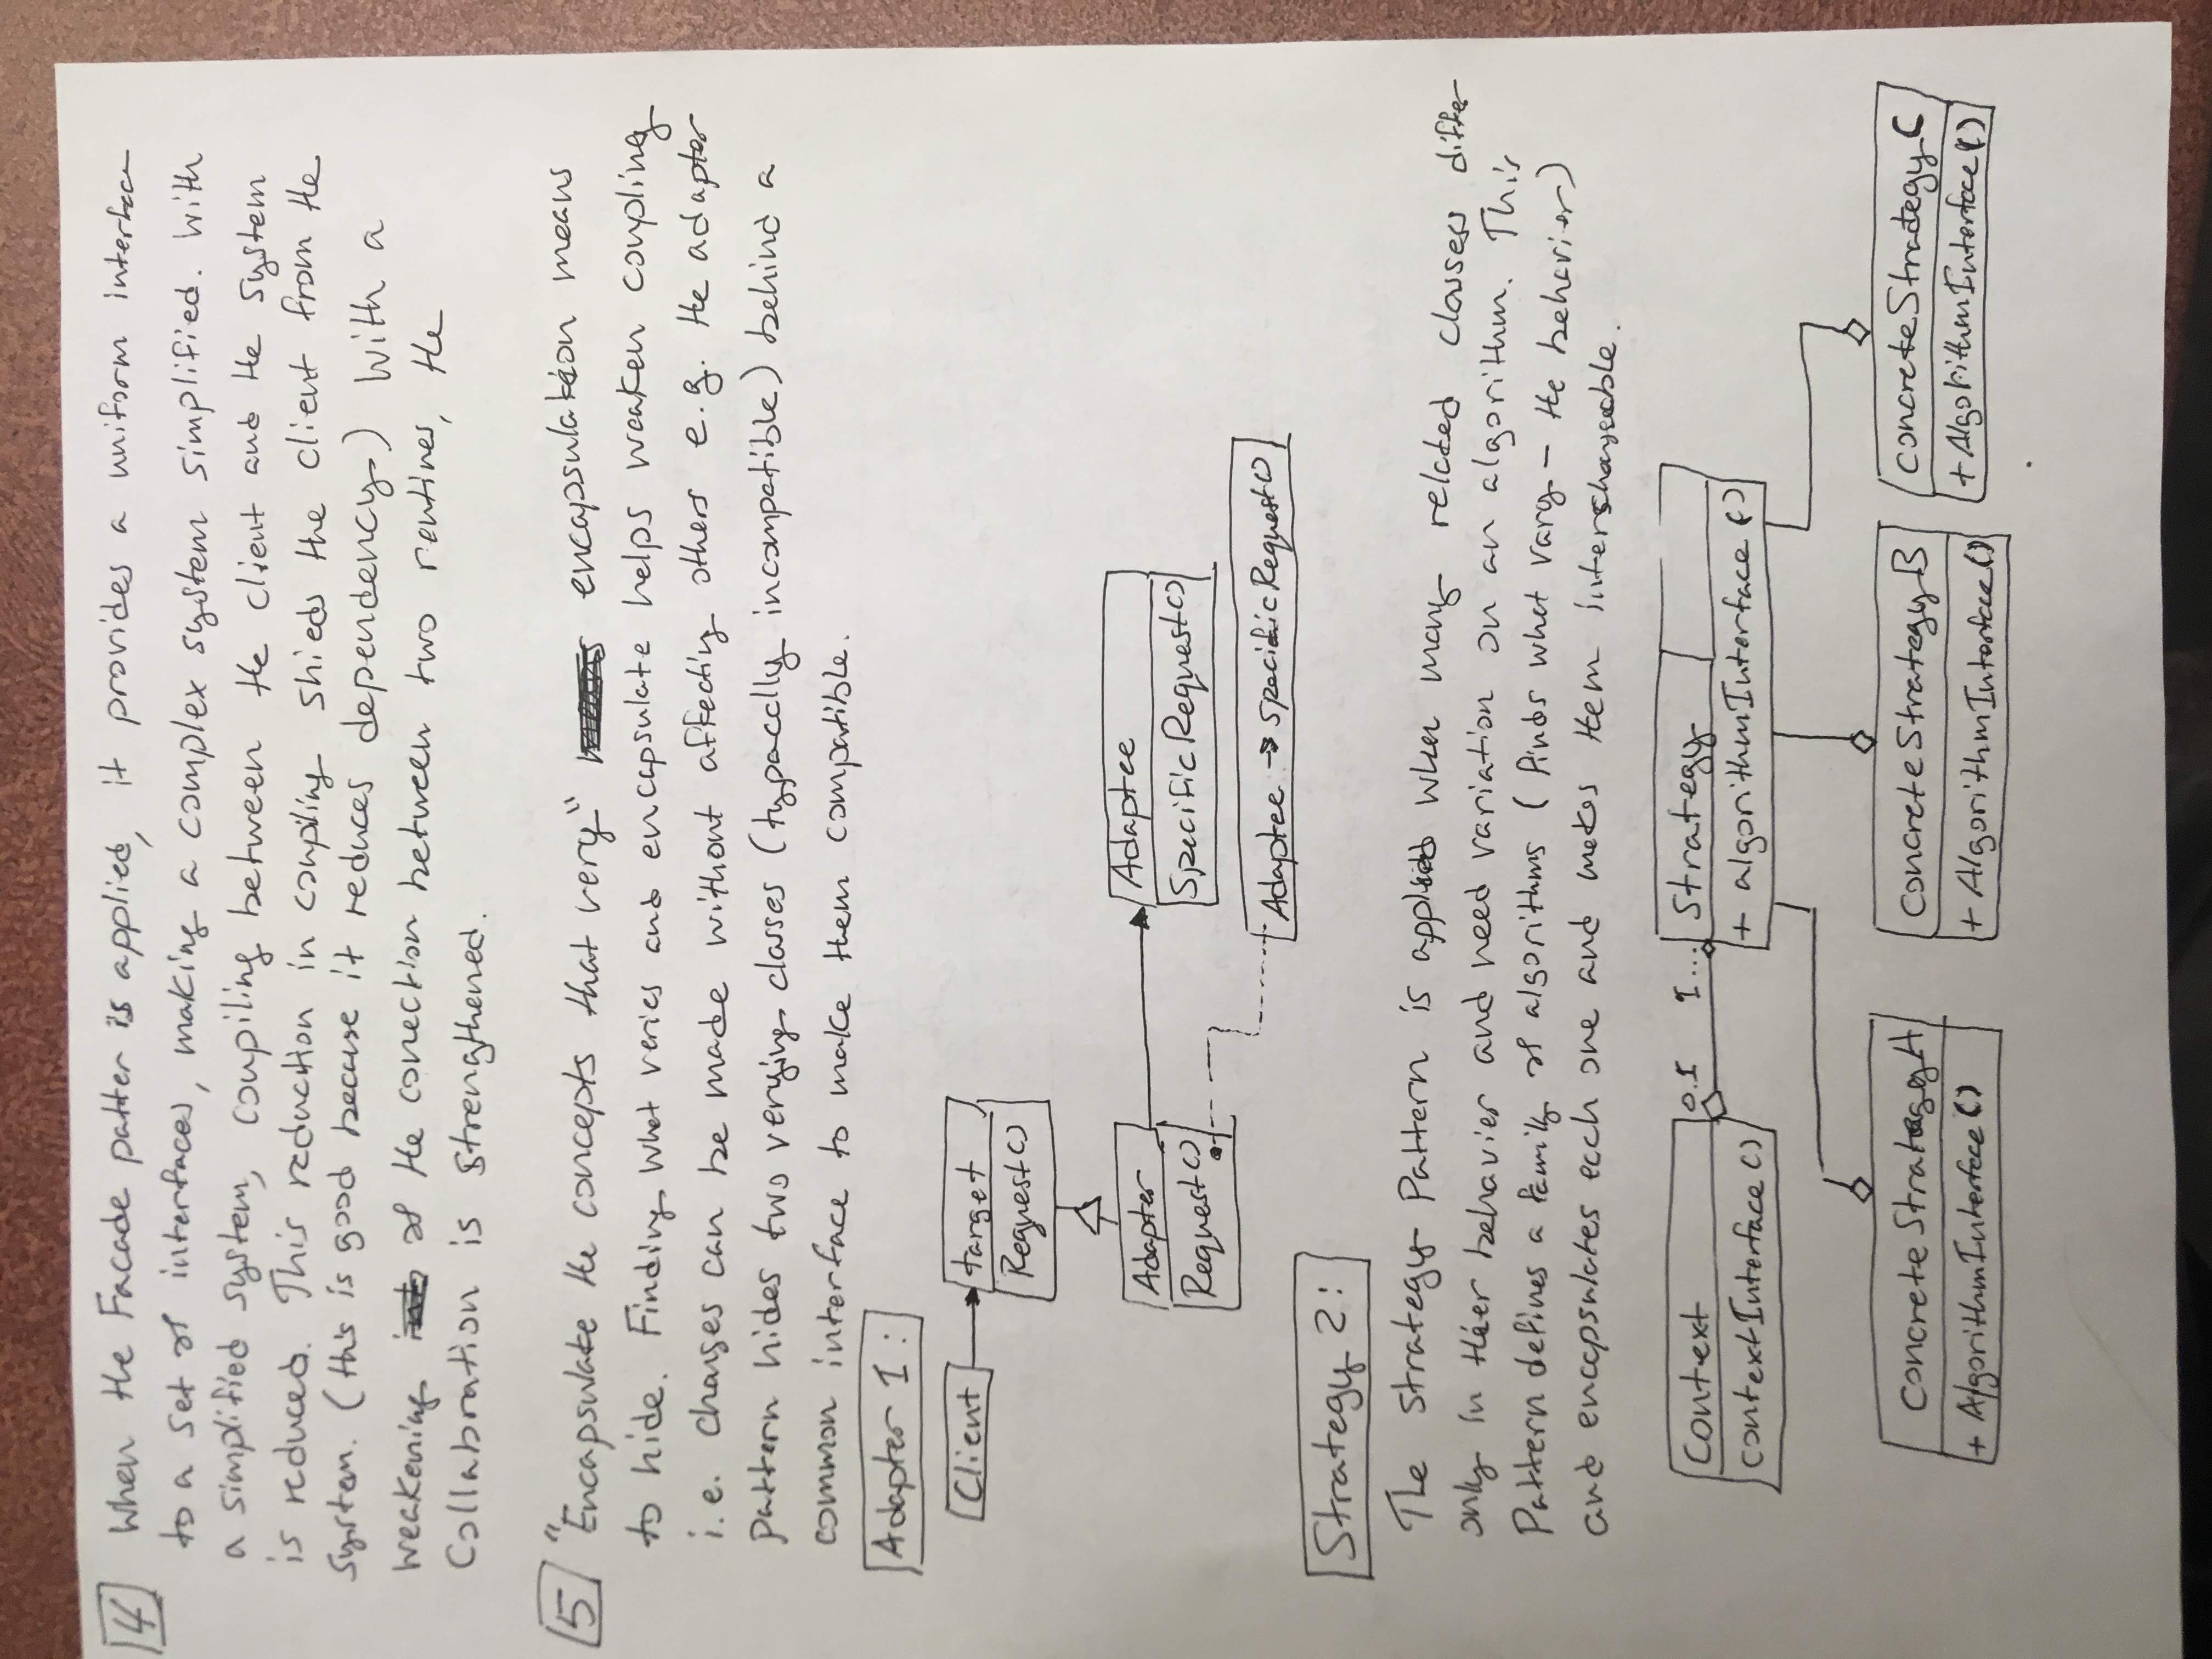 4 When the Facade patter is applied, it provides a uniform interface
to a set of interfaces, making a complex system simplified. With
a simplified system, coupiling between the client and the system
is reduced. This reduction in coupling shieds the client from the
system. (this is good because it reduces dependency) With a
weakening of the conection between two rontines, the
Collabration is strengthened.
5 "Encapsulate the concepts that very" encapsulation means
to hide. Finding what veries and encapsulate helps weaken coupling
i.e. changes can be made without affecting others e.g. the adapter
pattern hides two verying classes (typacally incompatible) behind a
common interface to make them compatible.
Adapter 1:
Client
target
Request()
Adapter
Request()
Adaptee
SpecificRequest()
Adaptee → specificRequest()
Strategy 2:
The strategy Pattern is applied when many related classes differ
only in their behavier and need variation on an algorithm. This
Pattern defines a family of algorithms (finds what vary - the behavier)
and encapsulates each one and makes them interchangeable.
Context
contextInterface()
0.1 1...
Strategy
+ algorithmInterface()
ConcreteStrategyA
+ AlgorithmInterface()
ConcreteStrategyB
+ AlgorithmInterface()
ConcreteStrategyC
+ AlgorithmInterface()